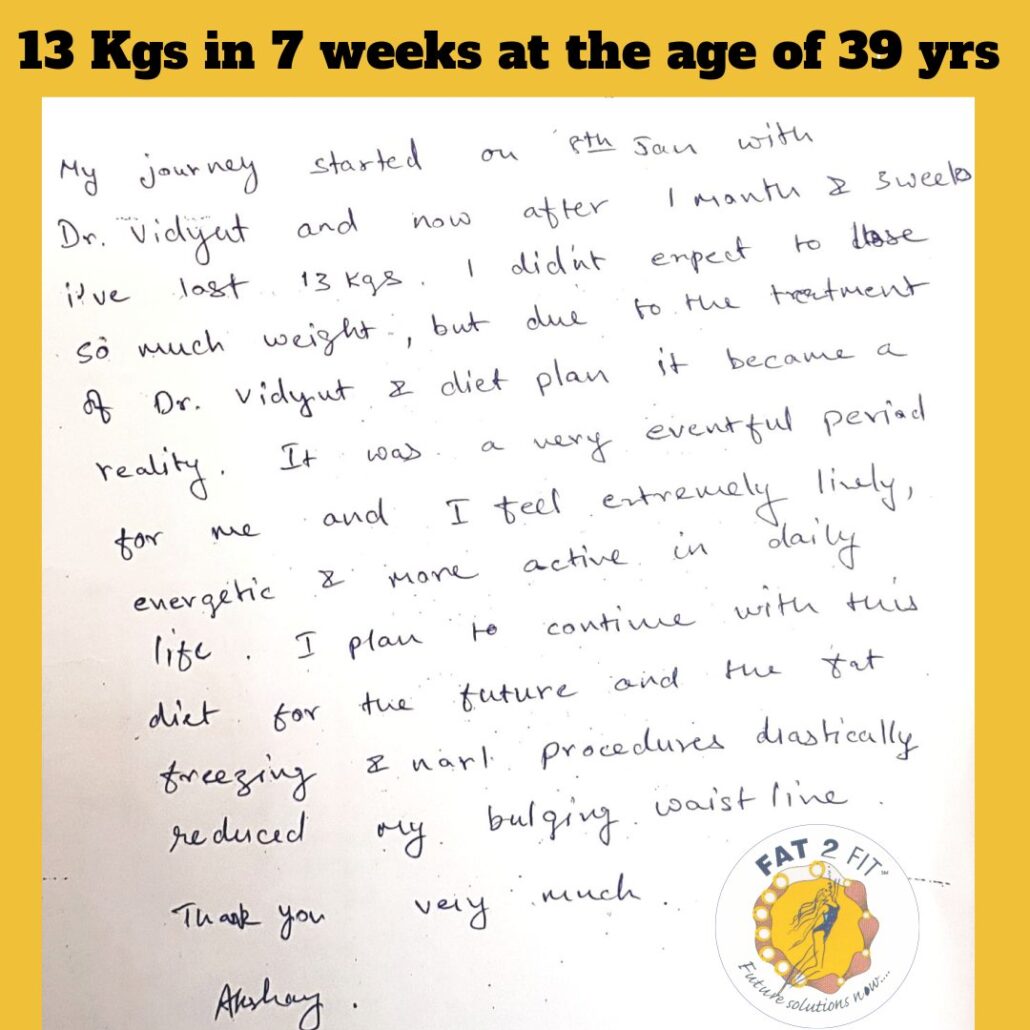 13 Kgs in 7 weeks at the age of 39 yrs
My journey started on 8th Jan with
Dr. Vidyut and now after 1 month & 3 weeks
i've lost 13 kgs. I didn't expect to lose
so much weight, but due to the treatment
of Dr. Vidyut & diet plan it became a
reality. It was a very eventful period
for me and I feel extremely lively,
energetic & more active in daily
life. I plan to continue with this
diet for the future and the fat
freezing & procedures drastically
reduced my bulging waist line.
Thank you very much.
Akshay.
FAT 2 FIT™
Future solutions now...